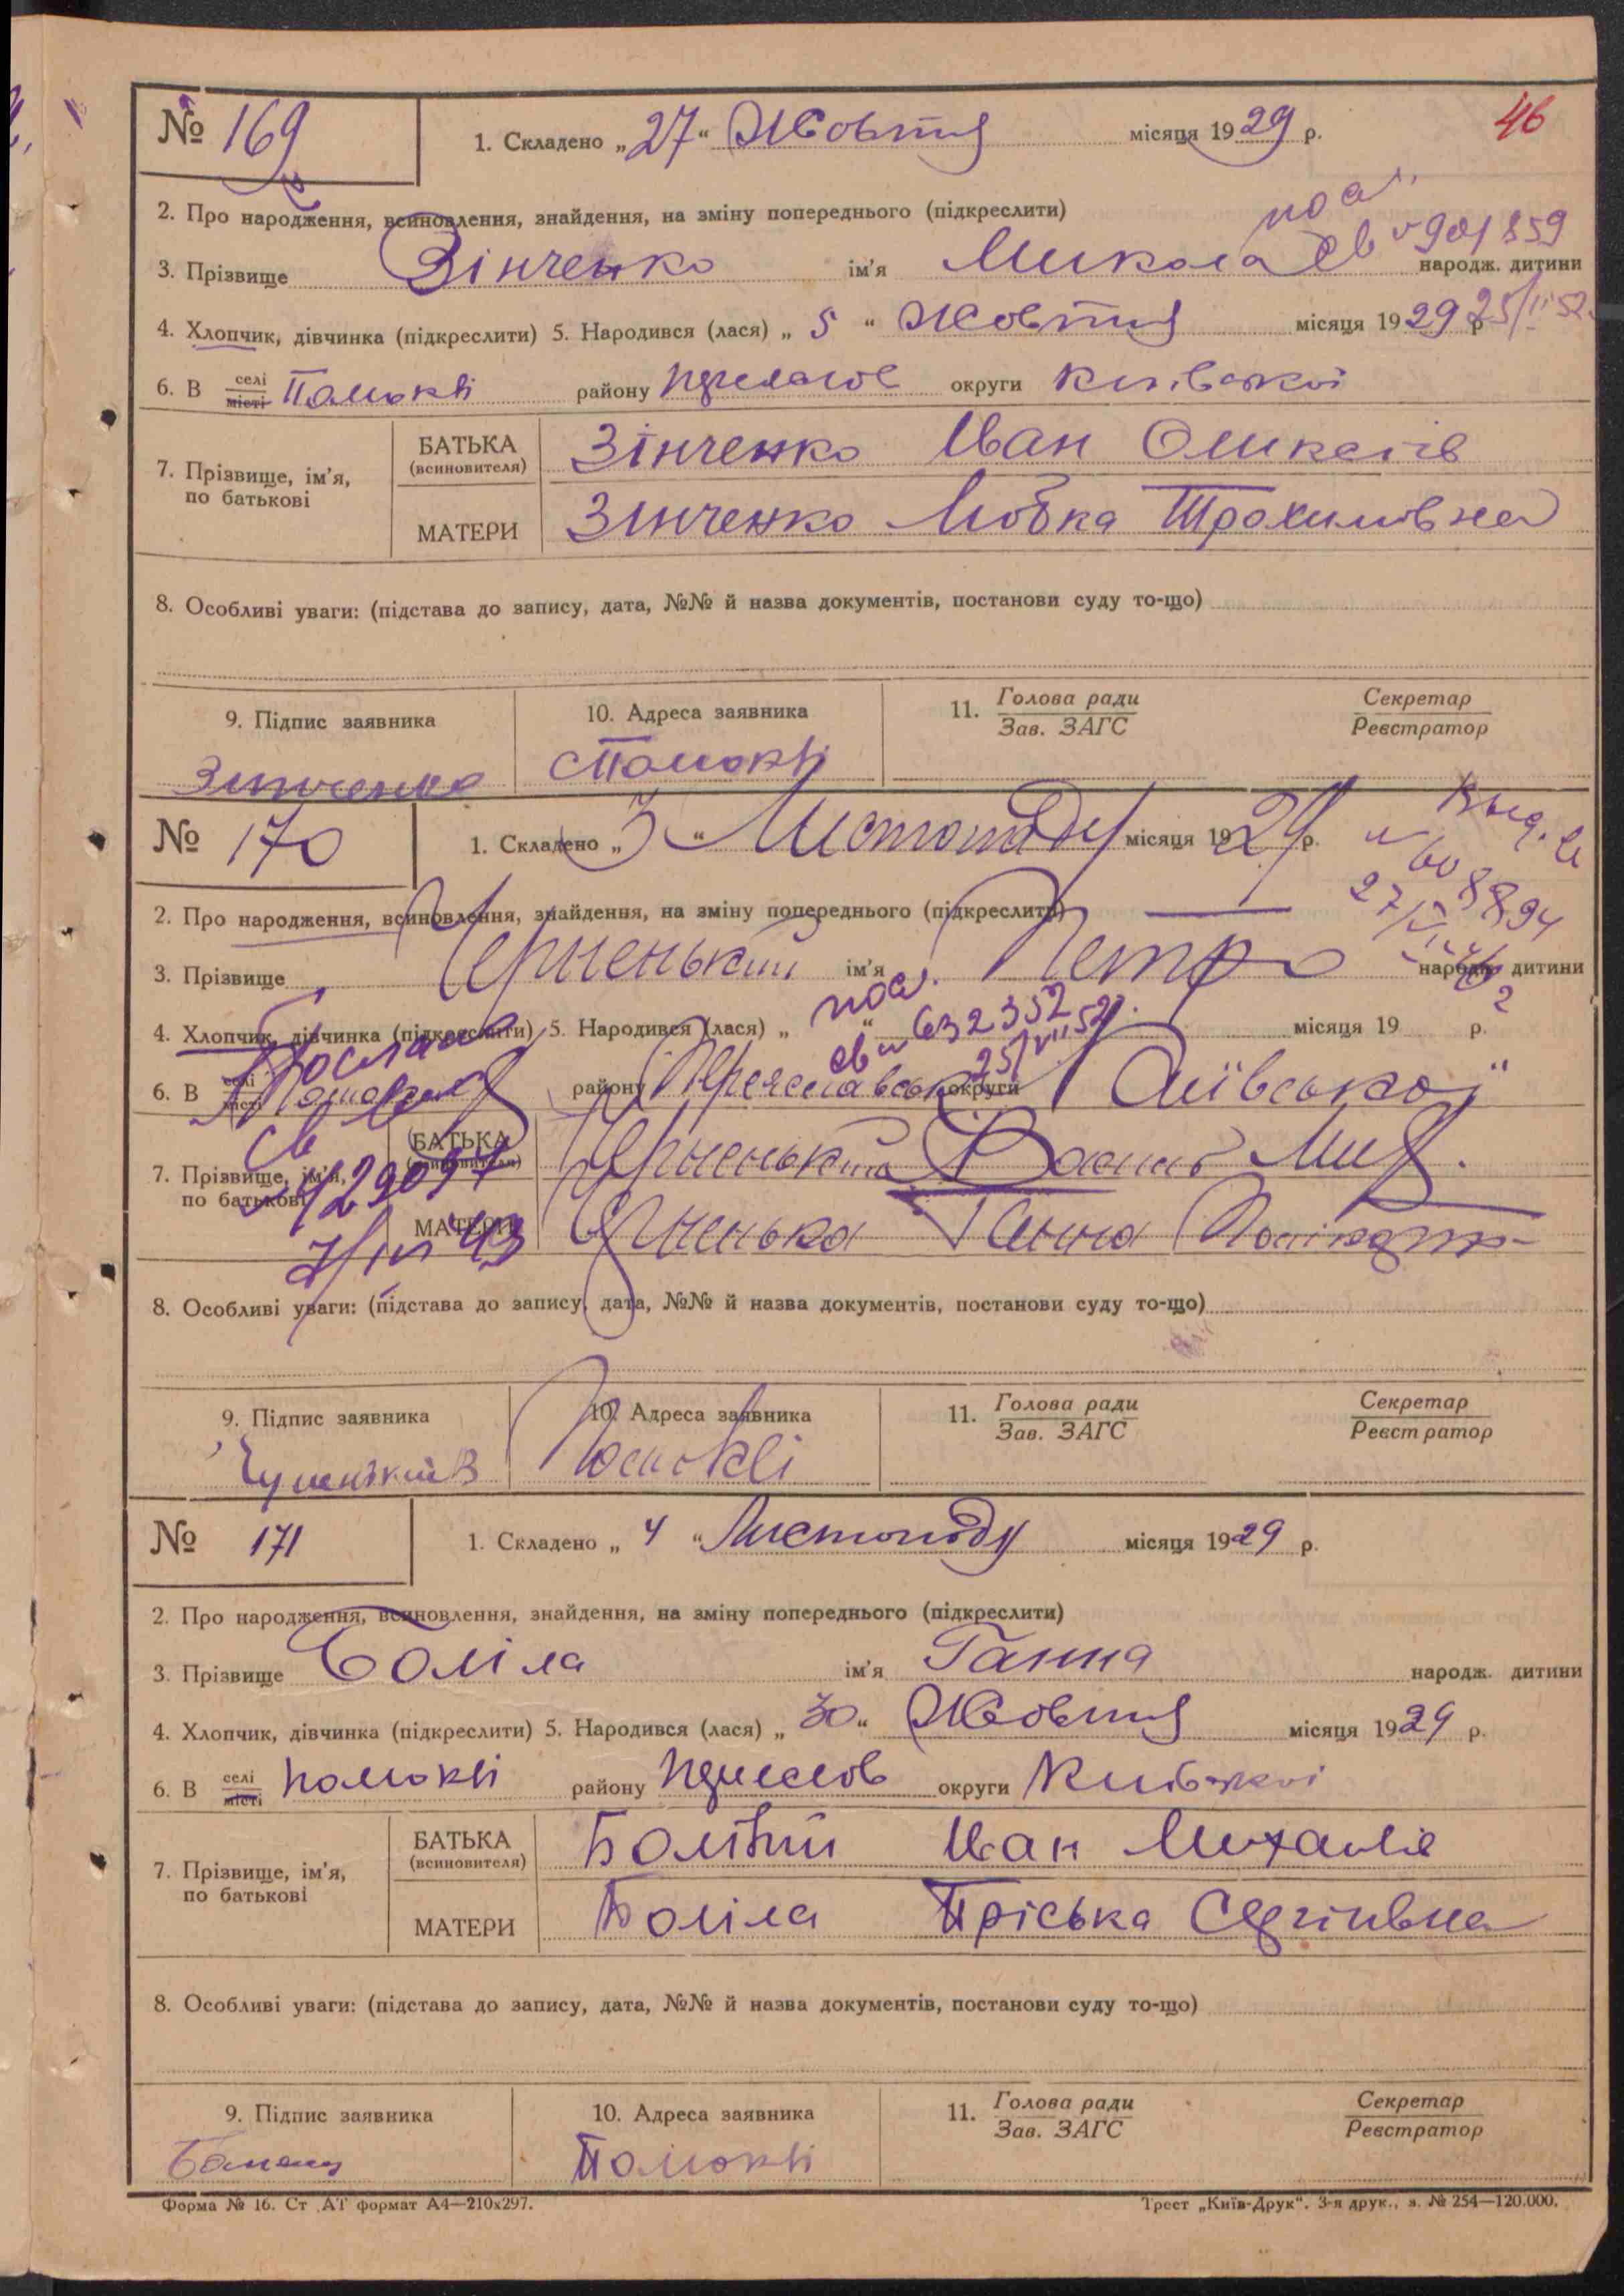 46
№ 169
1. Складено „27“ Жовтня місяця 1929 р.
2. Про народження, всиновлення, знайдення, на зміну попереднього (підкреслити)
3. Прізвище Зінченко ім'я Микола народж. дитини
4. Хлопчик, дівчинка (підкреслити) 5. Народився (лася) „ 5 “ Жовтня місяця 1929 р
6. В селі місті Помоклі району округи Київської
7. Прізвище, ім'я, по батькові
БАТЬКА (всиновителя) Зінченко Іван
МАТЕРИ Зинченко Любка Трохимовна
8. Особливі уваги: (підстава до запису, дата, №№ й назва документів, постанови суду то-що)
9. Підпис заявника
10. Адреса заявника
11. Голова ради Зав. ЗАГС
Секретар Реєстратор
Зинченко
№ 170
1. Складено „3“ Листопаду місяця 1929 р.
2. Про народження, всиновлення, знайдення, на зміну попереднього (підкреслити)
3. Прізвище ім'я Петро народж. дитини
4. Хлопчик, дівчинка (підкреслити) 5. Народився (лася) „ “ місяця 19 р.
пос. св № 632352
6. В селі місті району Переяславськ округи Київської
7. Прізвище, ім'я, по батькові
БАТЬКА (всиновителя) Василь
МАТЕРИ Ганна
8. Особливі уваги: (підстава до запису, дата, №№ й назва документів, постанови суду то-що)
9. Підпис заявника
10. Адреса заявника
11. Голова ради Зав. ЗАГС
Секретар Реєстратор
Помоклі
№ 171
1. Складено „ 4 “ Листопаду місяця 1929 р.
2. Про народження, всиновлення, знайдення, на зміну попереднього (підкреслити)
3. Прізвище Боліла ім'я Ганна народж. дитини
4. Хлопчик, дівчинка (підкреслити) 5. Народився (лася) „ 30 “ Жовтня місяця 1929 р.
6. В селі місті Помоклі району округи Київської
7. Прізвище, ім'я, по батькові
БАТЬКА (всиновителя) Іван
МАТЕРИ Боліла Пріська Сергіивна
8. Особливі уваги: (підстава до запису, дата, №№ й назва документів, постанови суду то-що)
9. Підпис заявника
10. Адреса заявника
11. Голова ради Зав. ЗАГС
Секретар Реєстратор
Помоклі
Форма № 16. Ст АТ формат А4—210х297.
Трест „Київ-Друк“. 3-я друк., з. № 254—120.000.